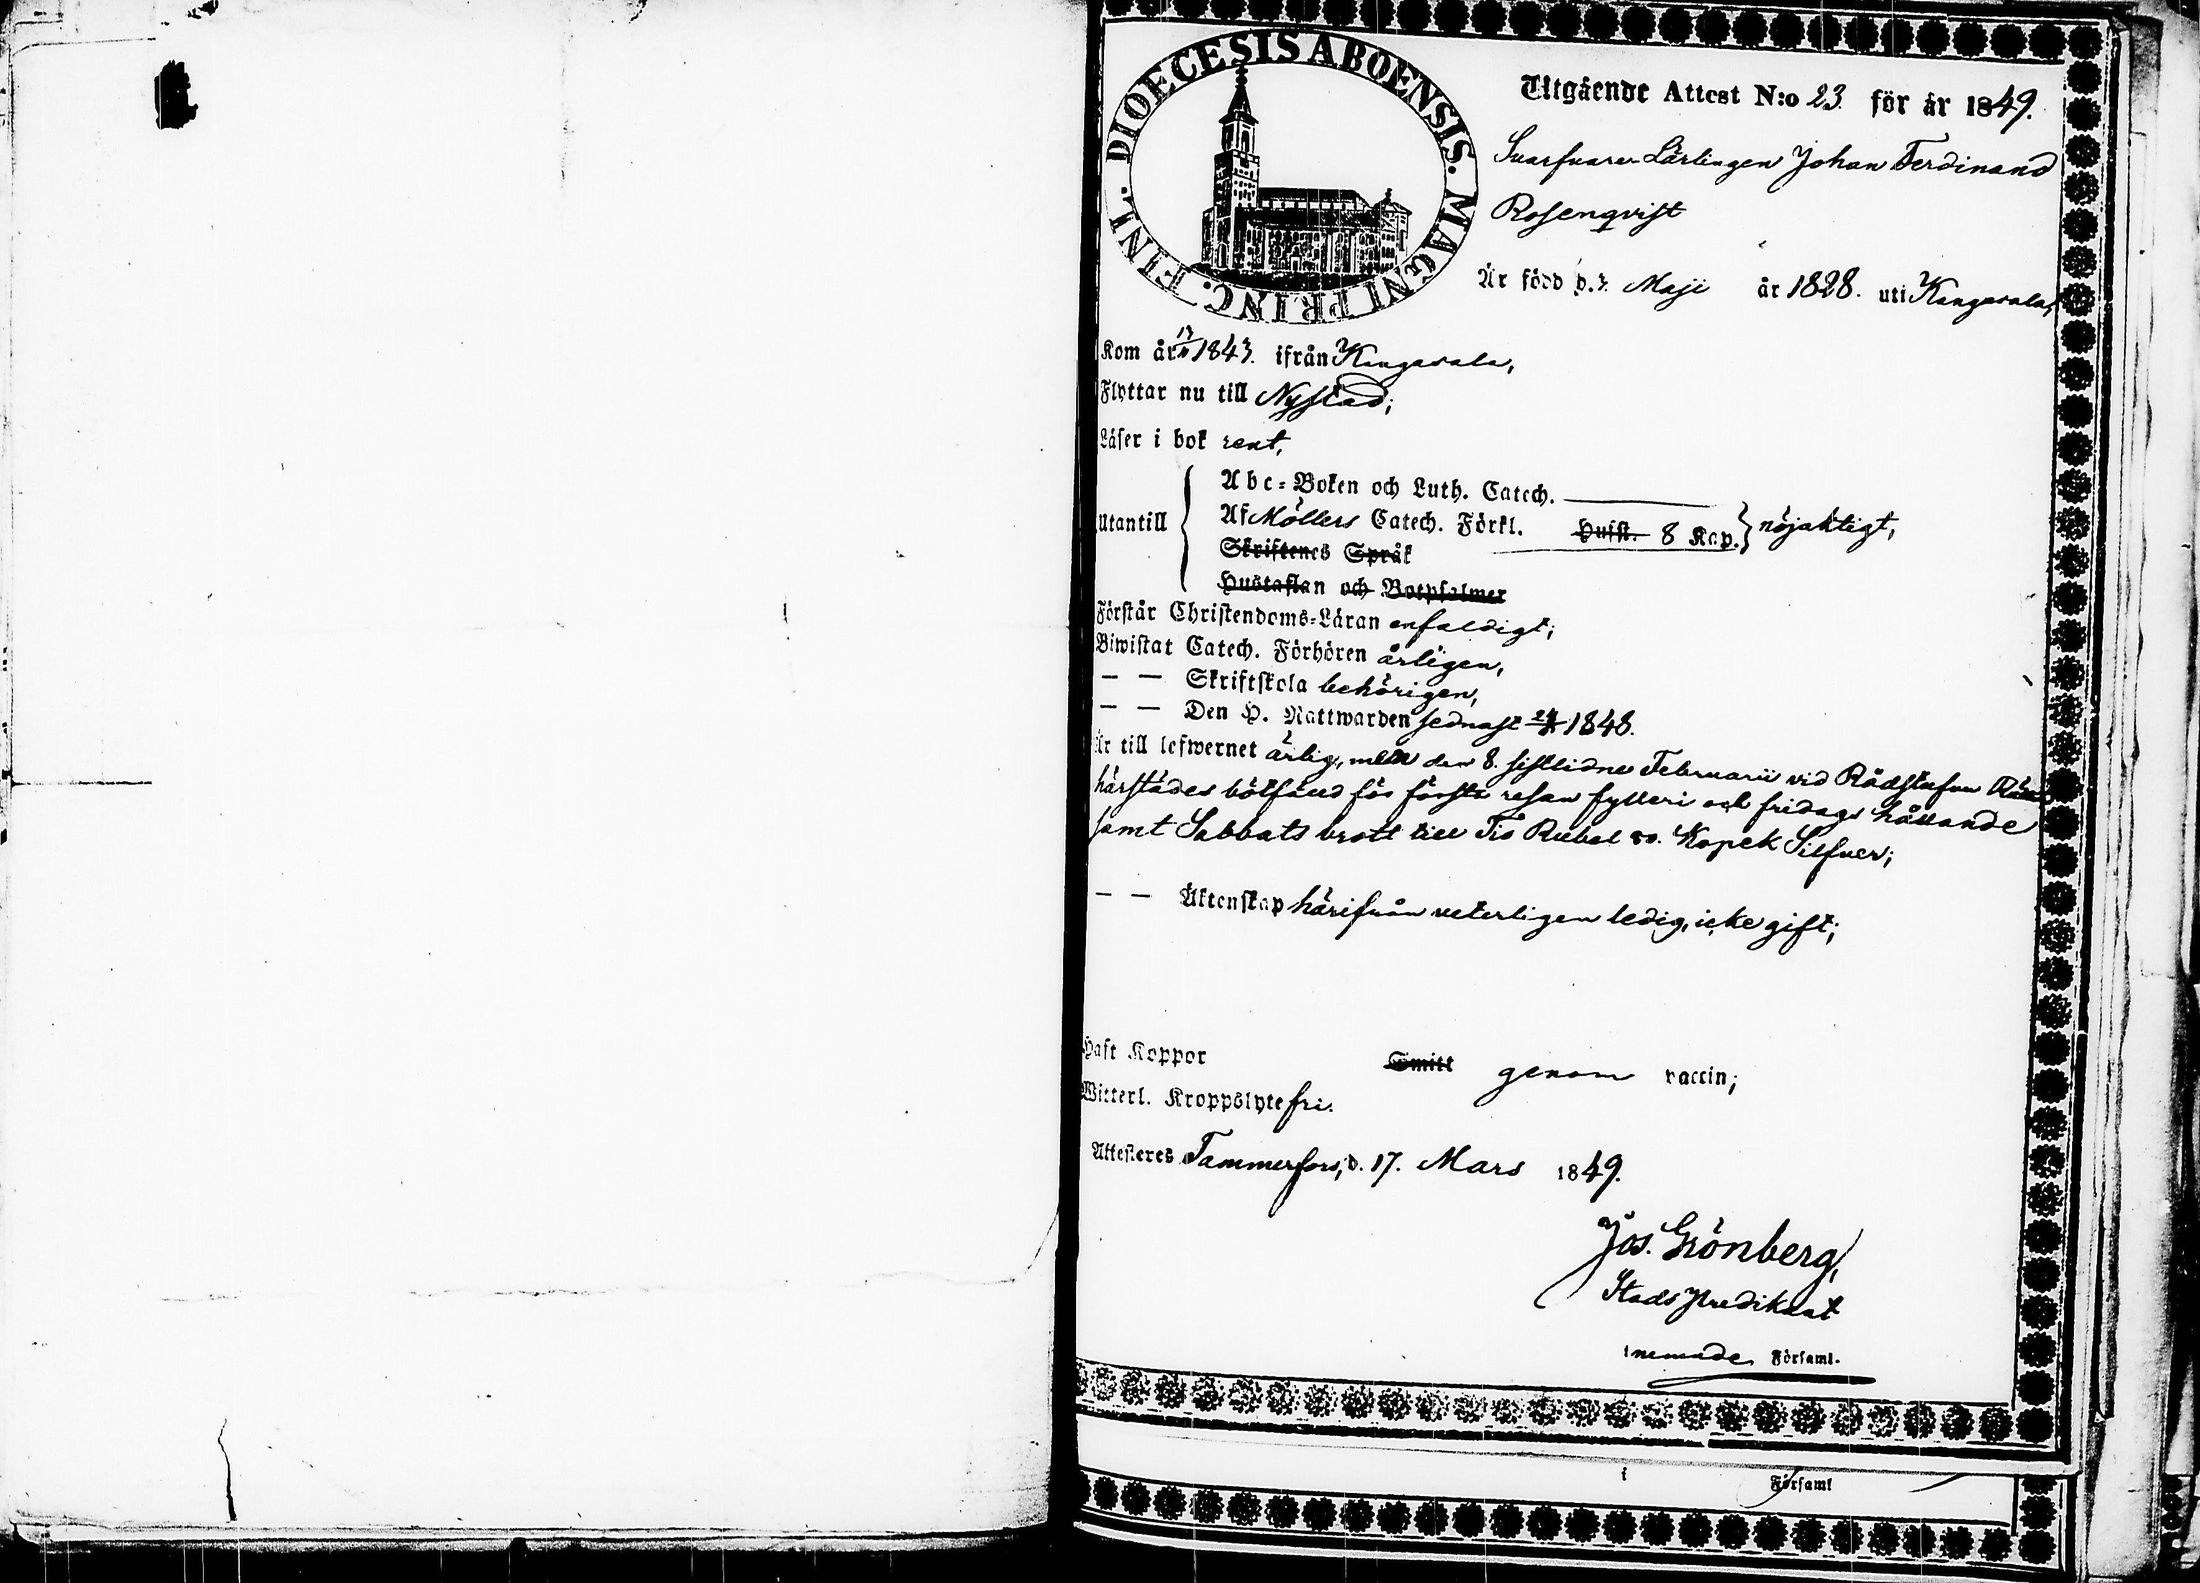 DIOECESIS ABOENSIS. MAGNI PRINC. FINL.
Utgående Attest N:o 23 för år 1849.
Suarfuare Lärlingen Johan Ferdinand
Rosenqvist
Är född d. 3. Maji år 1828. uti Kangasala,
Kom år 1843. ifrån Kangasala,
Flyttar nu till Nystad;
Läser i bok rent,
Utantill
Abc-Boken och Luth. Catech.
Af Möllers Catech. Förkl. Husst. 8 Kap. nöjaktigt,
Skriftenes Språk
Hustaflan och Botpsalmer
Förstår Christendoms-Läran enfaldigt;
Biwistat Catech. Förhören årligen,
— — Skriftskola behörigen,
— — Den H. Nattwarden sednast 1848.
Är till lefwernet ärlig, men den 8. sistlidne Februarii vid Rådstufvu
härstädes bötfäld för första resan fylleri och fridags hållande
samt Sabbats brott till Tio Rubel Kopek Silfver;
— — Äktenskap härifrån veterligen ledig, icke gift;
Haft Koppor Smitt genom vaccin;
Witterl. Kroppslyte fri.
Attesteres Tammerfors, d. 17. Mars 1849.
Jos. Grönberg,
Stads Predikant
i nemnde Församl.
i Församl